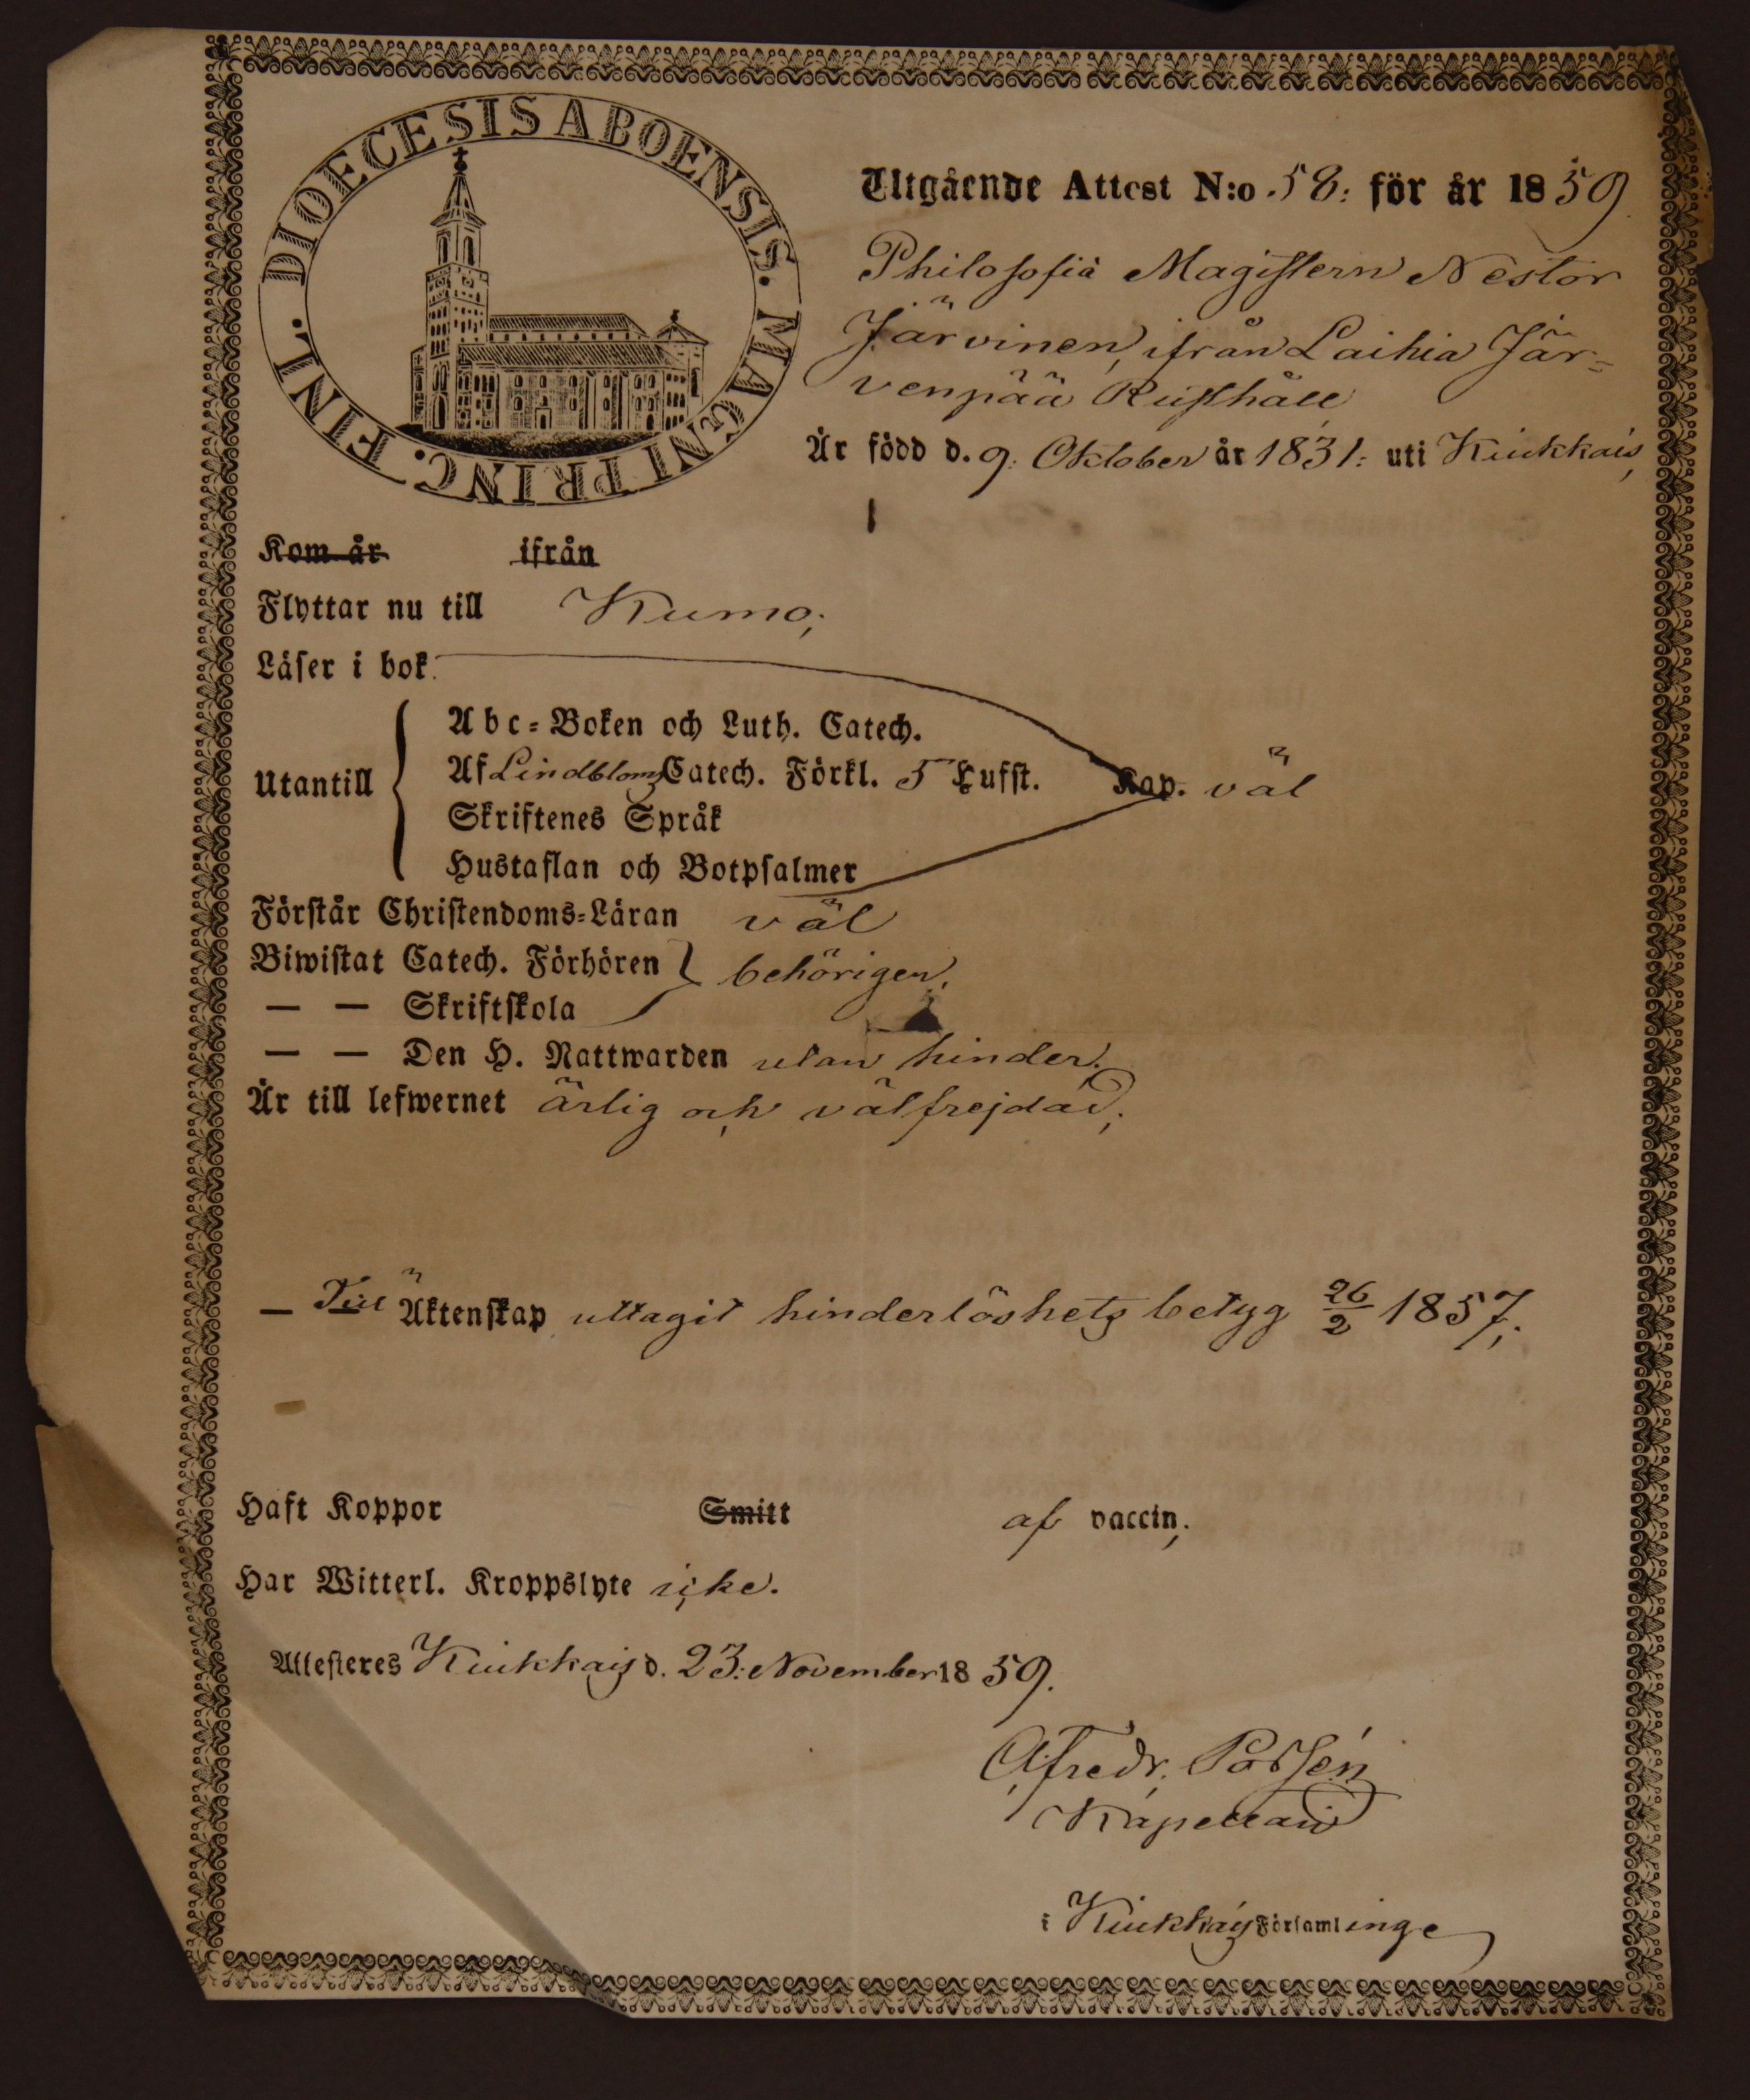 DIOECESIS ABOENSIS. MAGNI PRINC. FINL.
Utgående Attest N:o 58: för år 1859.
Philosofiä Magistern Nestor
Järvinen, ifrån Laihia Jär=
venpää Rusthåll
Är född d. 9: Oktober år 1831: uti Kiukkais,
Kom år ifrån
Flyttar nu till Kumo;
Läser i bok
Utantill
Abc=Boken och Luth. Catech.
Af Lindbloms Catech. Förkl. 5 Hufst. Kap. väl
Skriftenes Språk
Hustaflan och Botpsalmer
Förstår Christendoms=Läran väl
Biwistat Catech. Förhören behörigen;
— — Skriftskola
— — Den H. Nattwarden utan hinder.
Är till lefwernet ärlig och välfrejdad;
— Till Äktenskap uttagit hinderlöshets betyg 26/2 1857;
Haft Koppor Smitt af vaccin;
Har Witterl. Kroppslyte icke.
Attesteres Kiukkais d. 23: November 1859.
Kapellan
i Kiukkais Församlinge